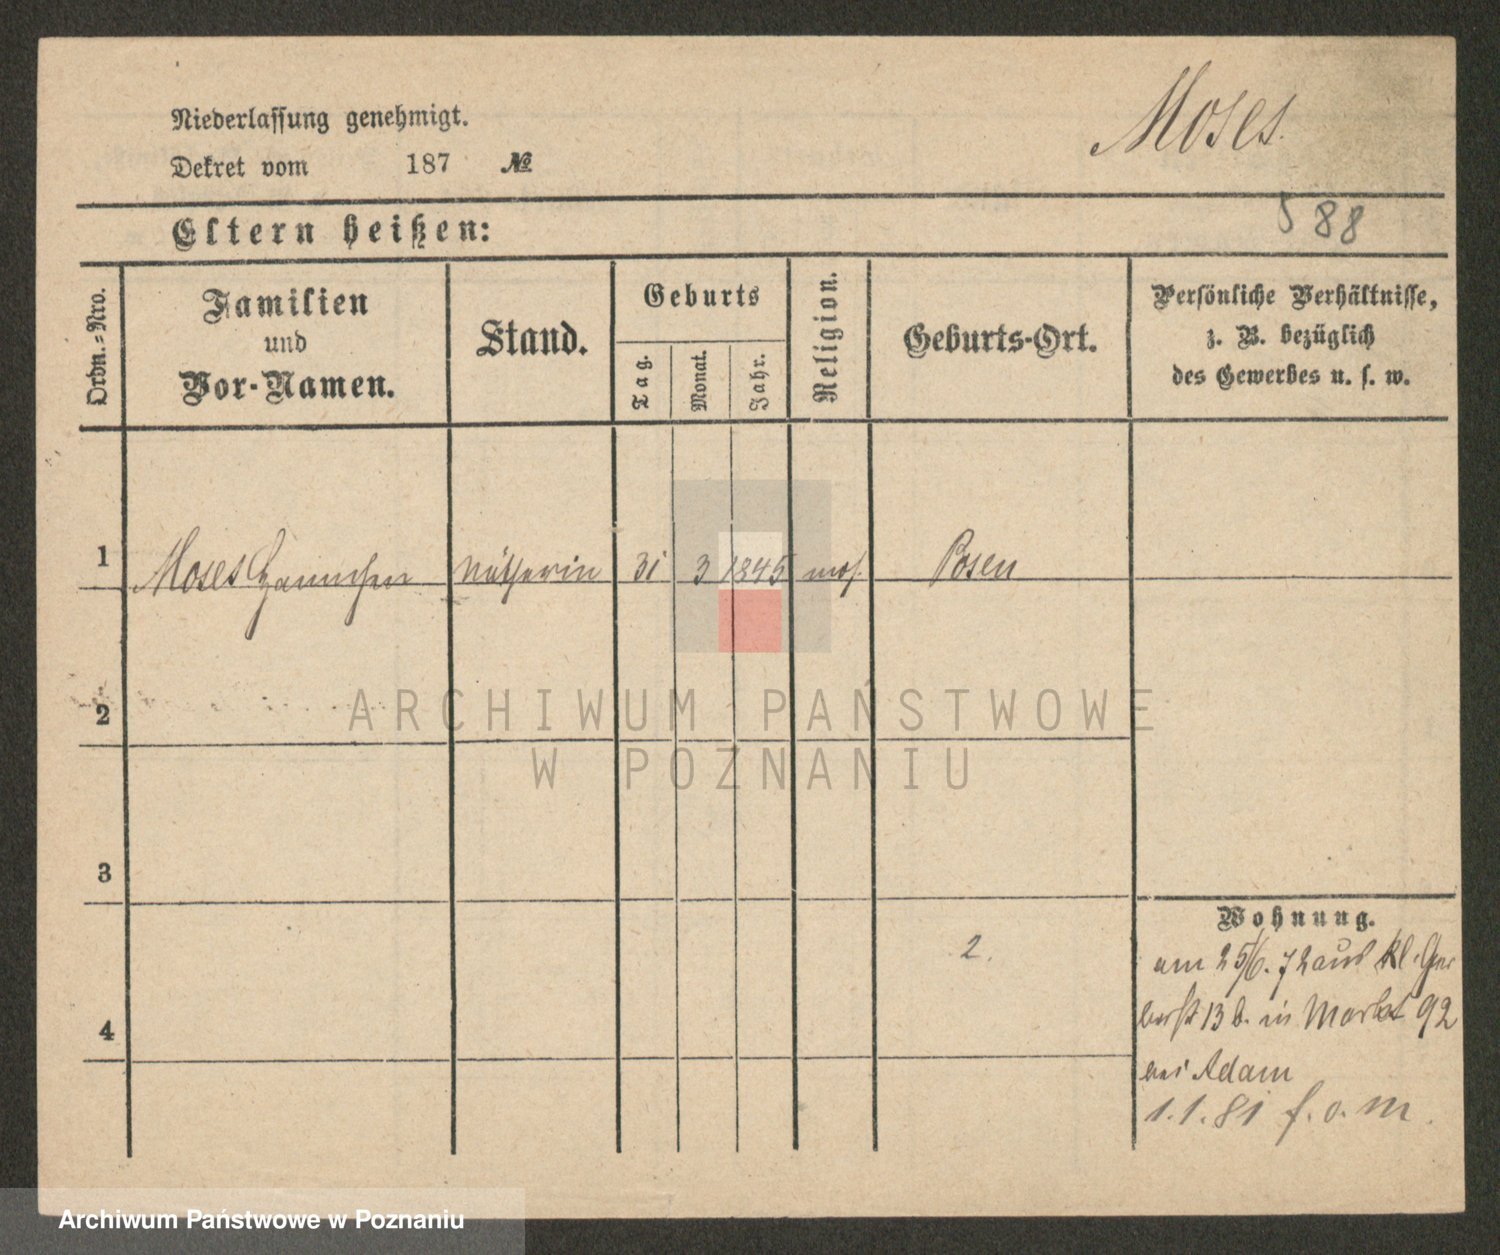 Niederlassung genehmigt.
Moses.
Dekret vom 187 №
Eltern heißen:
88
Ordn.-Nro.
Familien
und
Vor-Namen.
Stand.
Geburts
Tag.
Monat.
Jahr.
Religion.
Geburts-Ort.
Persönliche Verhältnisse,
z. B. bezüglich
des Gewerbes u. s. w.
1 Moses Hannchen Nätherin 31 3 1845 mos. Posen
2
ARCHIWUM PAŃSTWOWE
W POZNANIU
3
Wohnung.
2.
am 25/6. 72 aus kl. Ger
berst 13 b. in Markt 92
bei Adam
4
1.1.81 f. o. M.
Archiwum Państwowe w Poznaniu